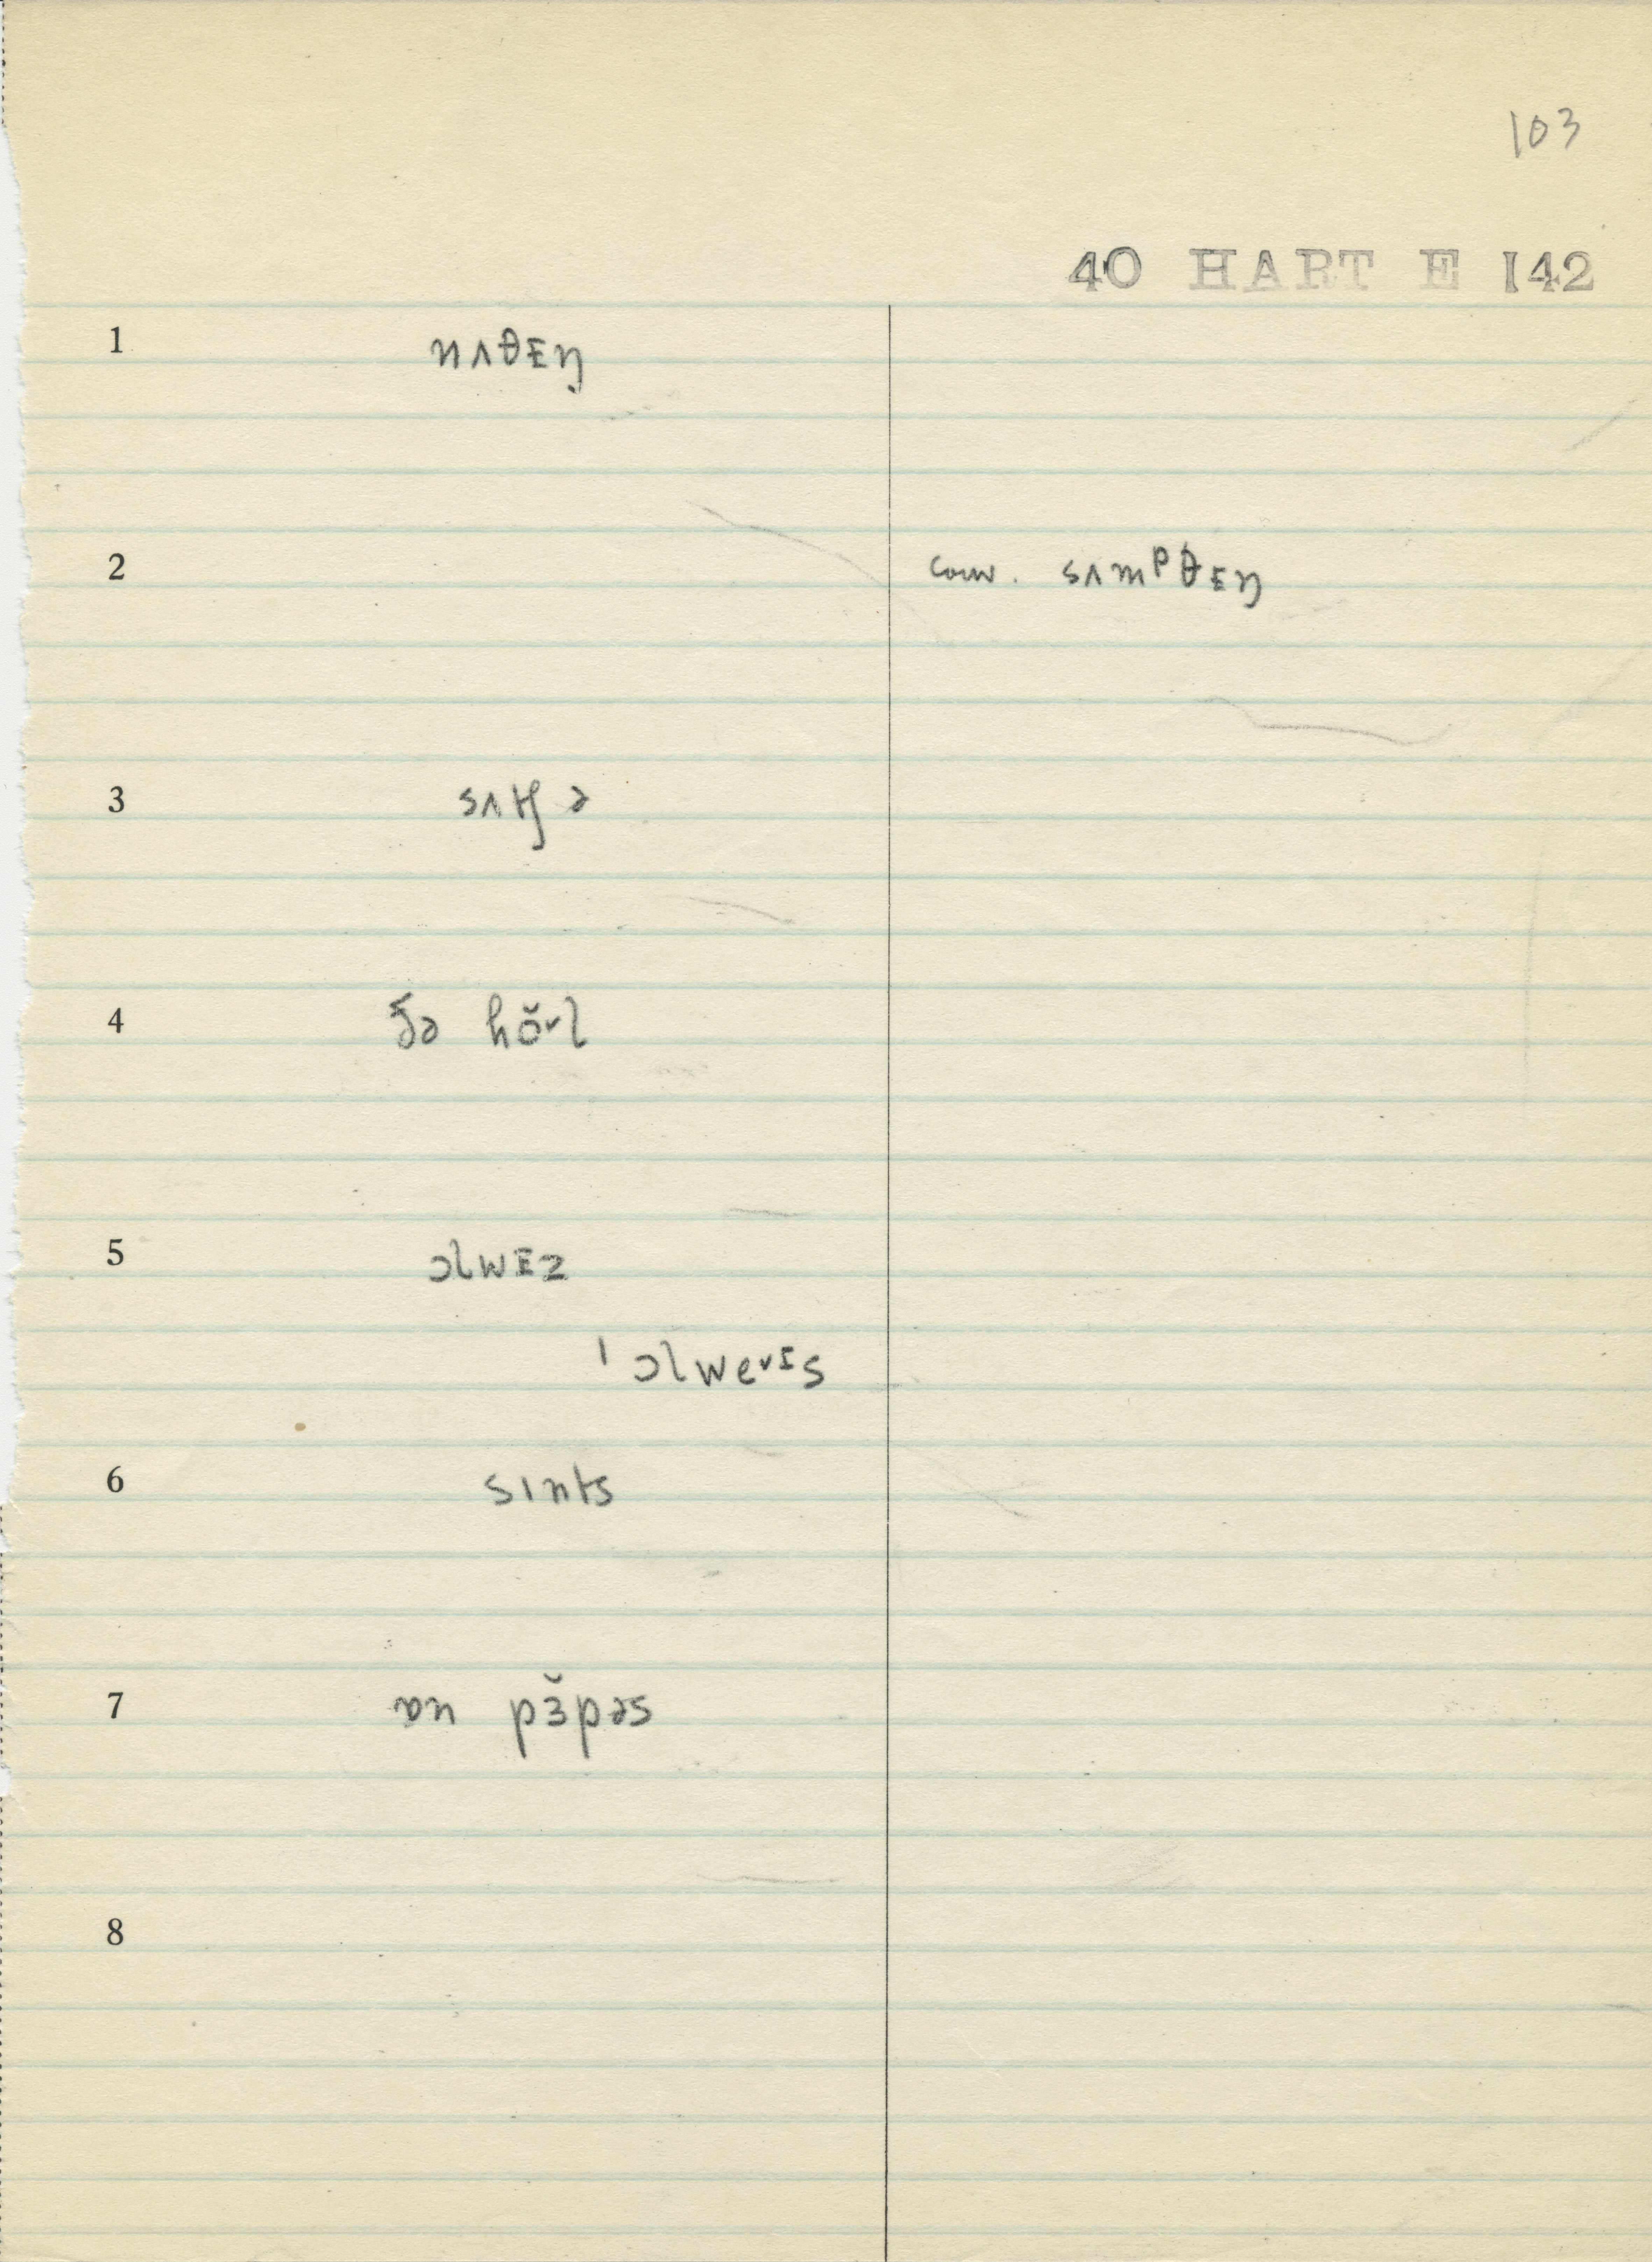 103
40 HART E 142
1 nʌθᴇŋ
2 conv. sʌmᵖθᴇŋ
3 sʌtʃ ə
4 ðə hŏ˅l
5 ɔlwᴇz
ˈɔlwe˅ᶦs
6 sɪnts
7 ɒn pɜ̆pəs
8